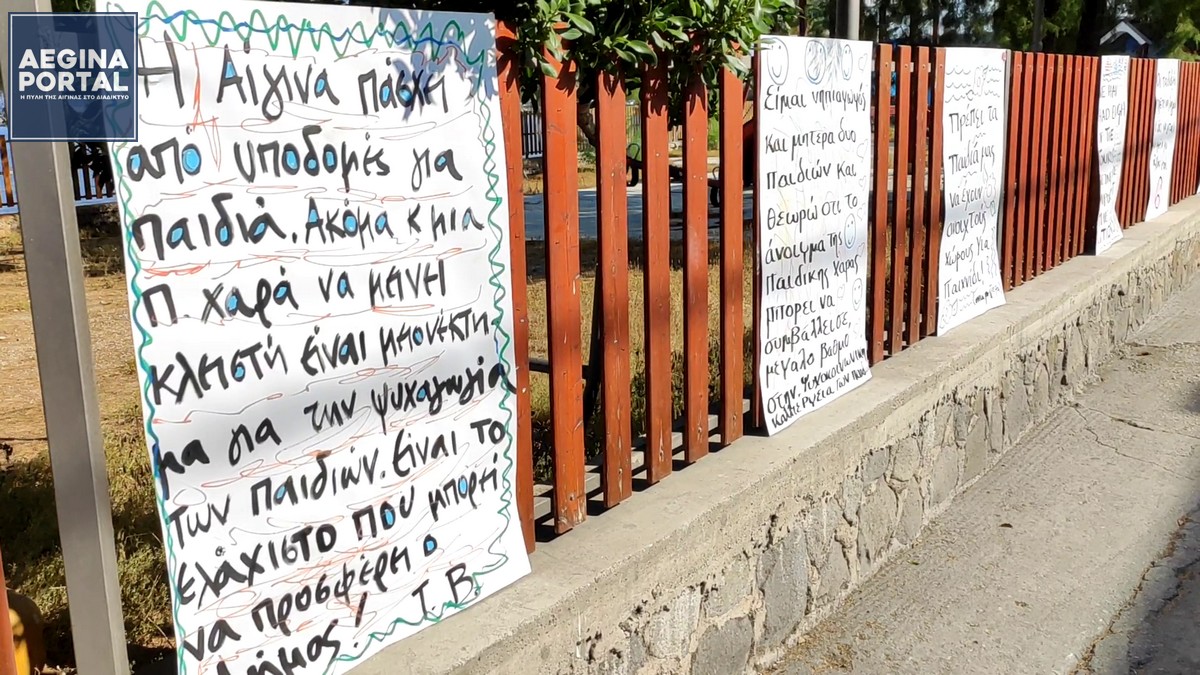 AEGINA
PORTAL
Η ΠΥΛΗ ΤΗΣ ΑΙΓΙΝΑΣ ΣΤΟ ΔΙΑΔΙΚΤΥΟ
Η Αίγινα πάσχη
από υποδομές για
παιδιά. Ακόμα κ μια
Π. χαρά να μείνει
κλειστή είναι μειονέκτη
μα για την ψυχαγωγία
των παιδιών. Είναι το
ελάχιστο που μπορεί
να προσφέρει ο
Δήμος! Τ. Β.
Είμαι νηπιαγωγός
και μητέρα δυο
παιδιών και
θεωρώ ότι το
άνοιγμα της
Παιδικής χαράς
μπορεί να
συμβάλλει σε
μεγάλο βαθμό
στην ψυχοκοινωνική
Πρέπει τα
παιδιά μας
να έχουν
ανοιχτούς
χώρους για
παιχνίδι!